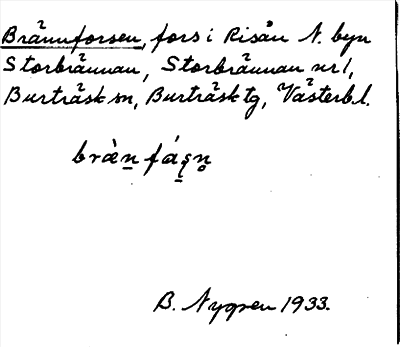 Brännforsen, fors i Risån N. byn
Storbrännan, Storbrännan nr 1,
Burträsk sn, Burträsk tg, Västerb.l.
bràn̲fáʂn̥
B. Nygren 1933.